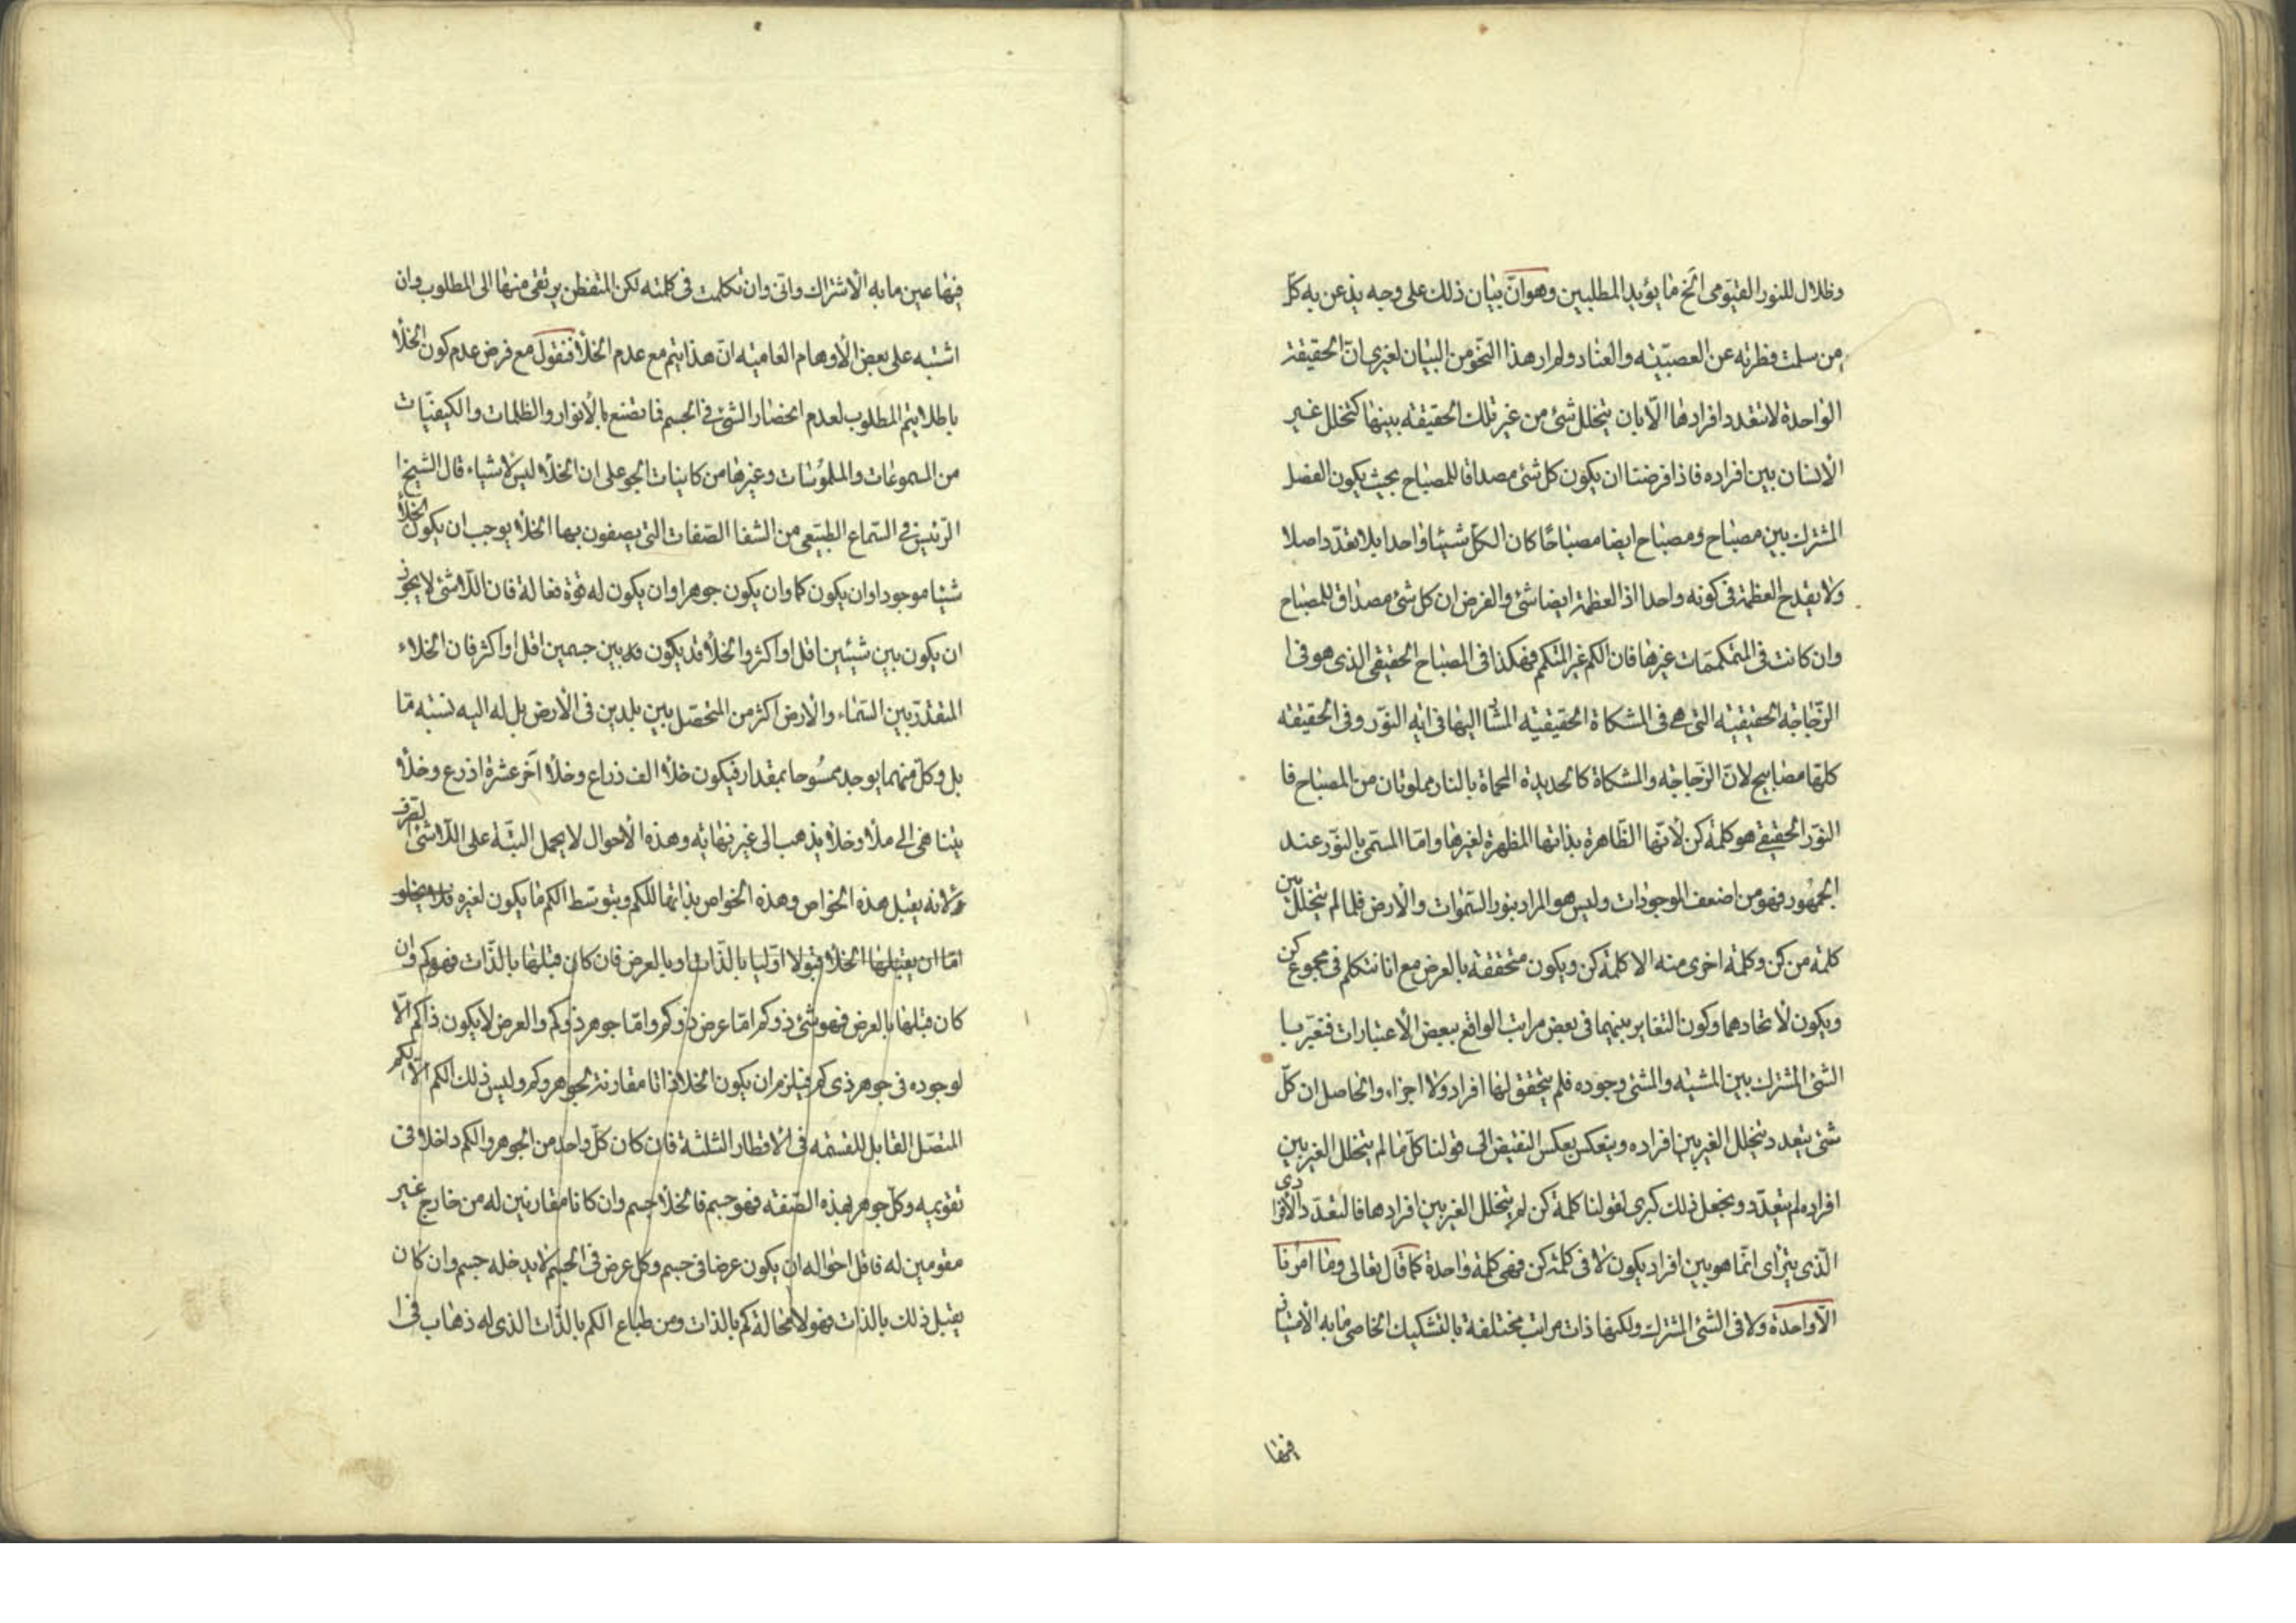 وظلال للنور القيومى انخ ما يؤيد المطلبين وهو انّ بيان ذلك على وجه يذعن به كلّ
من سلمت فطرته عن العصبيّة والعناد ولم ار هذا النحو من البيان لغيرى انّ الحقيقة
الواحدة لا تتعدد افرادها الّا بان يتخلل شئ من غير تلك الحقيقة بينها كتخلل غير
الانسان بين افراده فاذا فرضنا ان يكون كل شئ مصداقا للمصباح بحيث يكون الفصل
المشترك بين مصباح ومصباح ايضا مصباحًا كان الكلّ شيئا واحدا بلا تعدّد اصلا
ولا يقدح العظمة فى كونه واحدا اذ العظمة ايضا شئ والفرض ان كل شئ مصداق للمصباح
وان كانت فى المتكممات غيرها فان الكم غير المتكم فهكذا فى المصباح الحقيقى الذى هو فى ا
الزّجاجة الحقيقية التى هى فى المشكاة الحقيقية المشار اليها فى اية النوّر وفى الحقيقة
كلها مصابيح لانّ الزّجاجة والمشكاة كالحديدة المحماة بالنار مملوتان من المصباح فا
النوّر الحقيقى هو كلمة كن لانّها الظّاهرة بذاتها المظهرة لغيرها وامّا المسمّى بالنوّر عند
الجمهور فهو من اضعف الموجودات وليس هو المراد بنور السّموات والارض فلما لم يتخلل بين
كلمة من كن وكلمة اخرى منه الا كلمة كن ويكون متحققة بالعرض مع انا نتكلم فى مجموع كن
ويكون لاتحادهما وكون التغاير بينهما فى بعض مراتب الواقع ببعض الاعتبارات فتعبّر با
الشئ المشترك بين المشية والمشئ وجوده فلم يتحقق لها افراد ولا اجزاء والحاصل ان كلّ
شئ يتعدد يتخلل الغير بين افراده وينعكس بعكس النقيض الى قولنا كلّ ما لم يتخلل الغير بين
افراده لم يتعدّد ويجعل ذلك كبرى لقولنا كلمة كن لم يتخلل الغير بين افرادها فالتعدّد الافرادى
الّذى يترٰاى انّما هو بين افراد يكون لا فى كلمة كن فهى كلمة واحدة كما قال تعالى وما امرنا
الّا واحدة ولا فى الشئ المشترك ولكنها ذات مراتب مختلفة بالتشكيك الخاصى ما به الامتياز
فيها
فيها عين ما به الاشتراك وانى وان تكلمت فى كلمته لكن المتفطن يرتقى منها الى المطلوب وان
اشتبه على بعض الاوهام العامية انّ هذا يتم مع عدم الخلأ فنقول مع فرض عدم كون الخلأ
باطلا يتم المطلوب لعدم انحضار الشئ فى الجسم فما تصنع بالانوار والظلمات والكيفيّات
من المسموعات والملموُسات وغيرها من كاينات الجو على ان الخلأ ليس لا شياء قال الشيخ ا
الرّئيس فى السّماع الطبيعى من الشفا الصّفات التى يصفون بها الخلأ يوجب ان يكون الخلأ
شيئا موجودا وان يكون كما وان يكون جوهرا وان يكون له قوة فعالة فان اللّاشئ لا يجوز
ان يكون بين شيئين اقل او اكثر والخلأ قد يكون بين جسمين اقل او اكثر فان الخلاء
المتقدّر بين السّماء والارض اكثر من المتحصّل بين بلدين فى الارض بل له اليه نسبة مّا
بل وكلّ منهما يوجد ممسُوحا بمقدار فيكون خلأ الف ذراع وخلأ آخر عشرة اذرع وخلأ
يتناهى الى ملأ وخلأ يذهب الى غير نهاية وهذه الاحوال لا يحمل البتّة على اللّاشئ الصرف
ولانه يقبل هذه الخواص وهذه الخواص بذاتها للكم وبتوسّط الكم ما يكون لغيره فلا يخلو
امّا ان يقبلها الخلأ قبولا اوّليا بالذّات او بالعرض فان كان قبلها بالذّات فهو كم وان
كان قبلها بالعرض فهو شئ ذو كم امّا عرض ذو كم وامّا جوهر ذو كم والعرض لا يكون ذا كم الّا
لوجوده فى جوهر ذى كم فيلزم ان يكون الخلأ ذاتا مقارنة لجوهر وكم وليس ذلك الكم الّا الكم
المتصّل القابل للقسمة فى الاقطار الثلثة فان كان كلّ واحد من الجوهر والكم داخلا فى
تقويمه وكلّ جوهر بهذه الصّفة فهو جسم فالخلأ جسم وان كانا مقارنين له من خارج غير
مقومين له فاقل احواله ان يكون عرضا فى جسم وكل عرض فى الجسم لا يدخله جسم وان كان
يقبل ذلك بالذات فهو لا محالة كم بالذات ومن طباع الكم بالذّات الذى له ذهاب فى ا